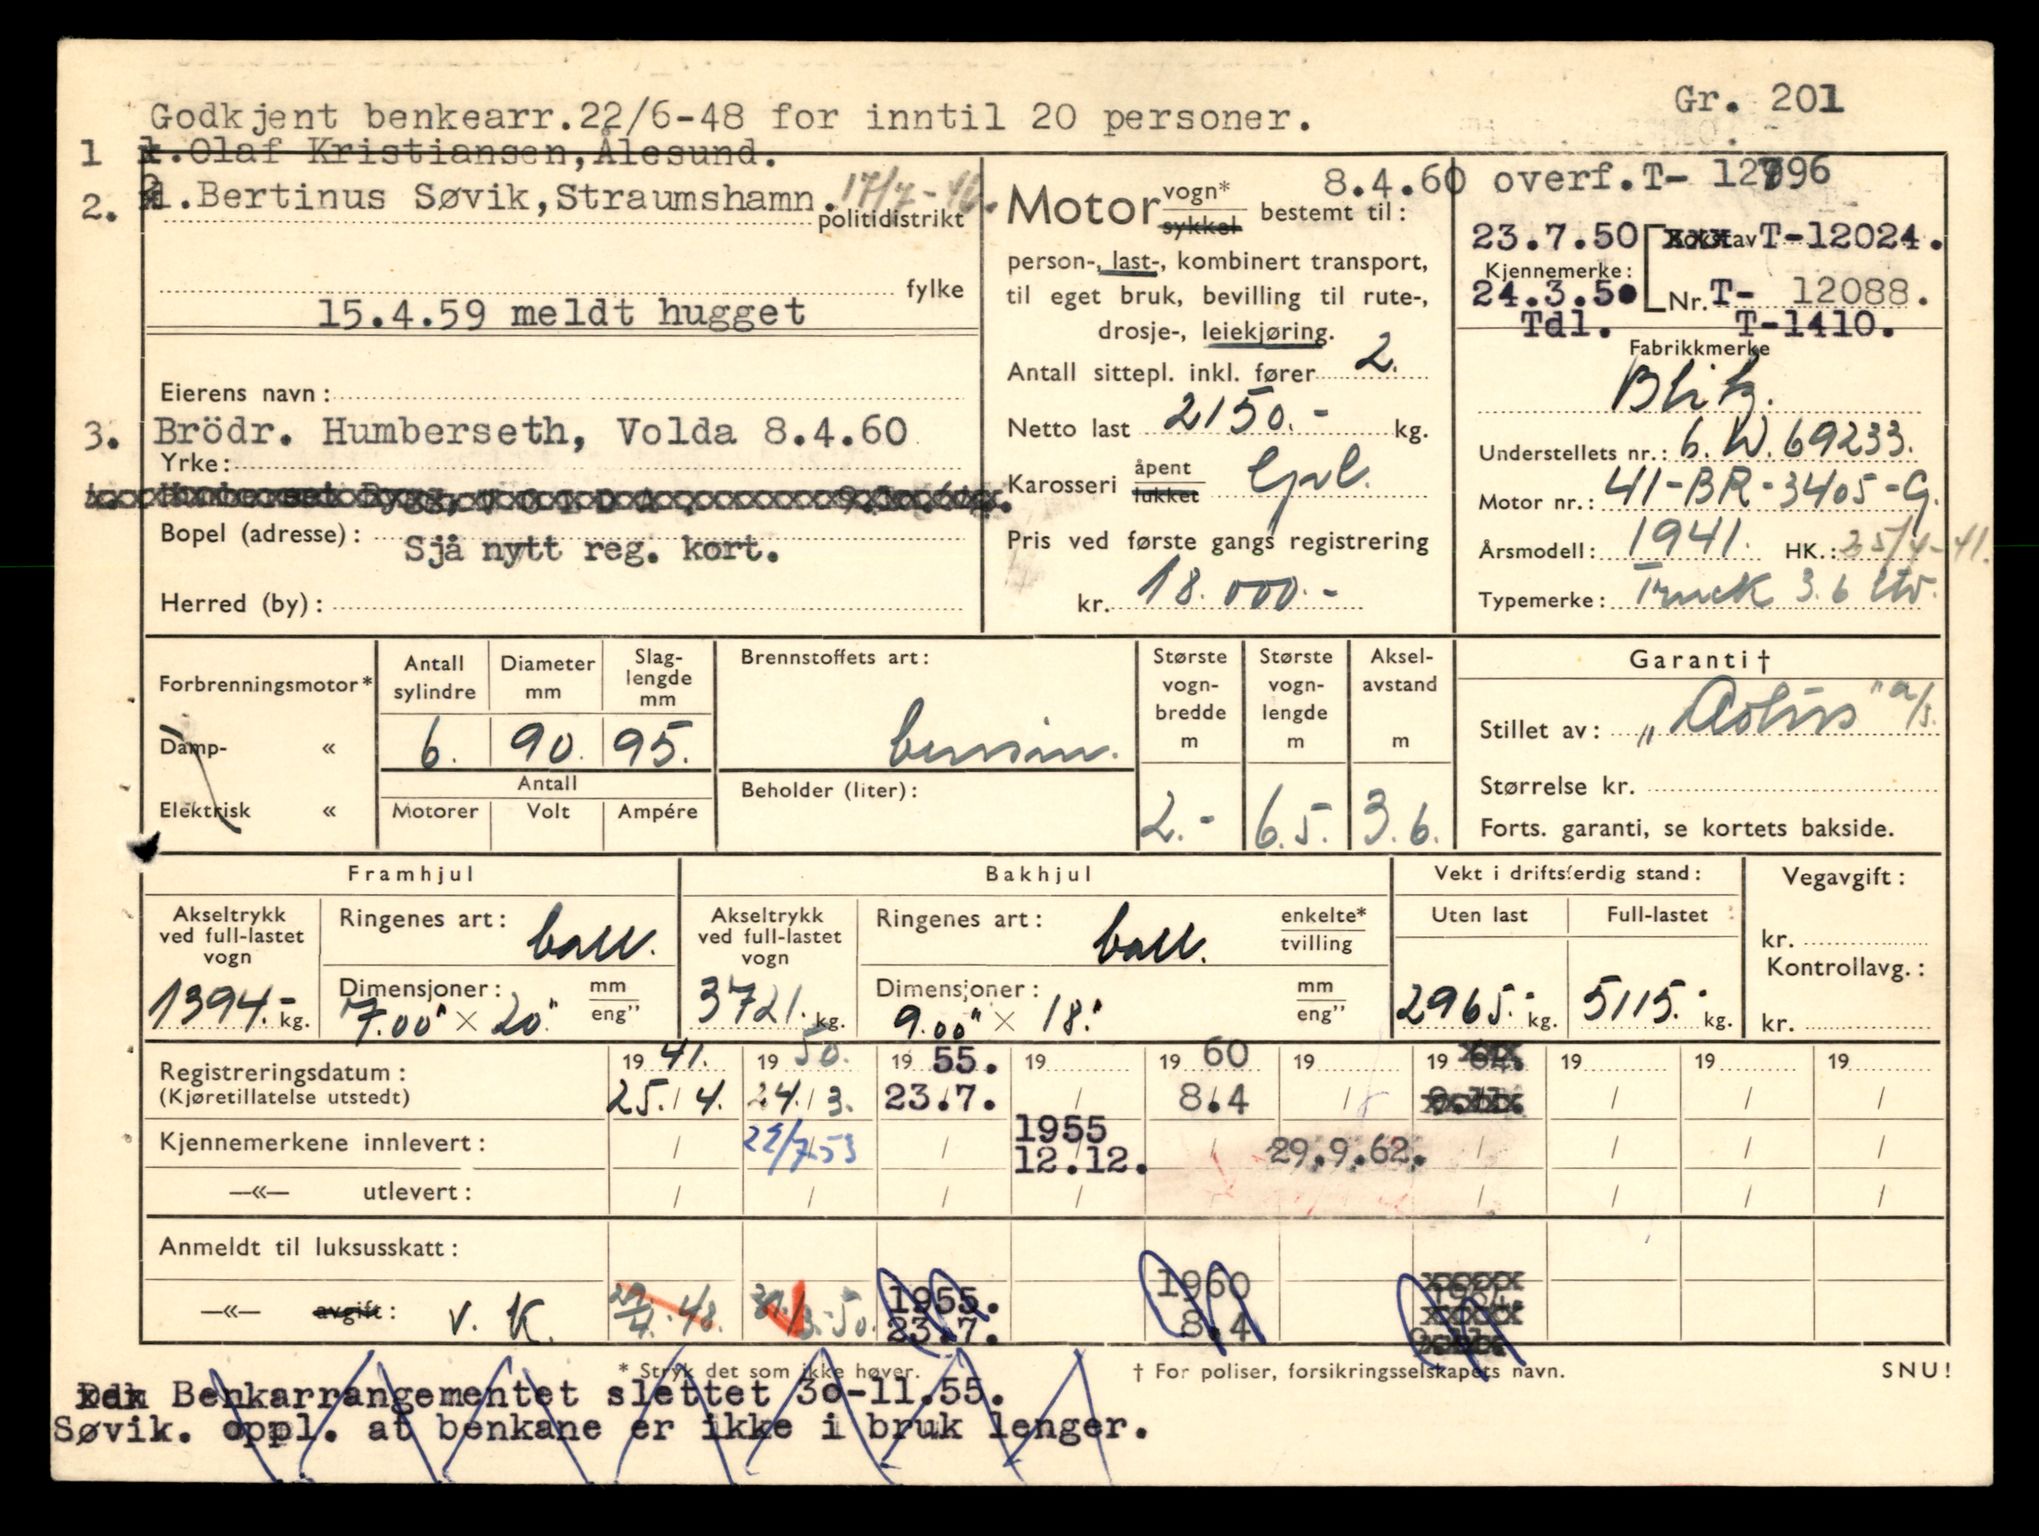 Gr. 201
Godkjent benkearr.22/6-48 for inntil 20 personer.
1 1.Olaf Kristiansen,Ålesund.
2. Bertinus Søvik,Straumshamn. 17/7-46.
politidistrikt
fylke
15.4.59 meldt hugget
Eierens navn:
3. Brödr. Humberseth, Volda 8.4.60
Yrke:
Bopel (adresse):
Sjå nytt reg. kort.
Herred (by):
8.4.60 overf.T- 12796
Motor vogn* sykkel bestemt til:
person-, last-, kombinert transport,
til eget bruk, bevilling til rute-,
drosje-, leiekjøring.
Antall sittepl. inkl. fører 2.
Netto last 2150.- kg.
Karosseri åpent lukket
Pris ved første gangs registrering
kr. 18.000.-
23.7.50 T-12024.
Kjennemerke:
24.3.50 Nr. T- 12088.
Tdl. T-1410.
Fabrikkmerke
Blitz.
Understellets nr.: 6.W.69233.
Motor nr.: 41-BR-3405-G.
Årsmodell: 1941. HK.: 25/4-41.
Typemerke: Truck 3.6 ltr.
Forbrenningsmotor*
Damp- «
Elektrisk «
Antall sylindre 6.
Diameter mm 90.
Slag-lengde mm 95.
Antall
Motorer Volt Ampére
Brennstoffets art:
bensin.
Beholder (liter):
Største vogn-bredde m 2.-
Største vogn-lengde m 6.5.
Aksel-avstand m 3.6.
Garanti†
Stillet av: "Aolus" a/s.
Størrelse kr.
Forts. garanti, se kortets bakside.
Framhjul
Akseltrykk ved full-lastet vogn 1394.- kg.
Ringenes art: ball.
Dimensjoner: mm eng" 7.00" × 20"
Bakhjul
Akseltrykk ved full-lastet vogn 3721. kg.
Ringenes art: ball. enkelte* tvilling
Dimensjoner: mm eng" 9.00" × 18"
Vekt i driftsferdig stand:
Uten last 2965.- kg.
Full-lastet 5115.- kg.
Vegavgift:
kr.
Kontrollavg.:
kr.
19 41. 19 50. 19 55. 19 19 60 19 19 64. 19 19 19
Registreringsdatum:
(Kjøretillatelse utstedt) 25./4. 24./3. 23.7. 8.4
Kjennemerkene innlevert: 22/7-53 1955 12.12. 29.9.62.
—«— utlevert:
Anmeldt til luksusskatt:
—«— avgift: v. K. 29/4.-48. 30./3.-50. 1955. 23.7. 1960 8.4
* Stryk det som ikke høver.
† For poliser, forsikringsselskapets navn.
SNU!
Benkarrangementet slettet 30-11.55.
Søvik. oppl. at benkane er ikke i bruk lenger.